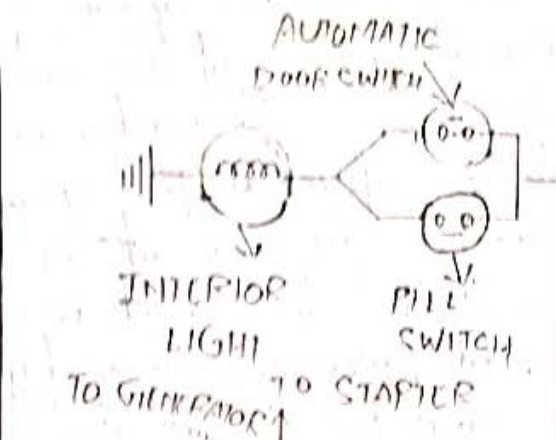 AUTOMATIC
DOOR SWITH
INTERIOR
LIGHT
PILL
SWITCH
TO GENERATOR
TO STARTER